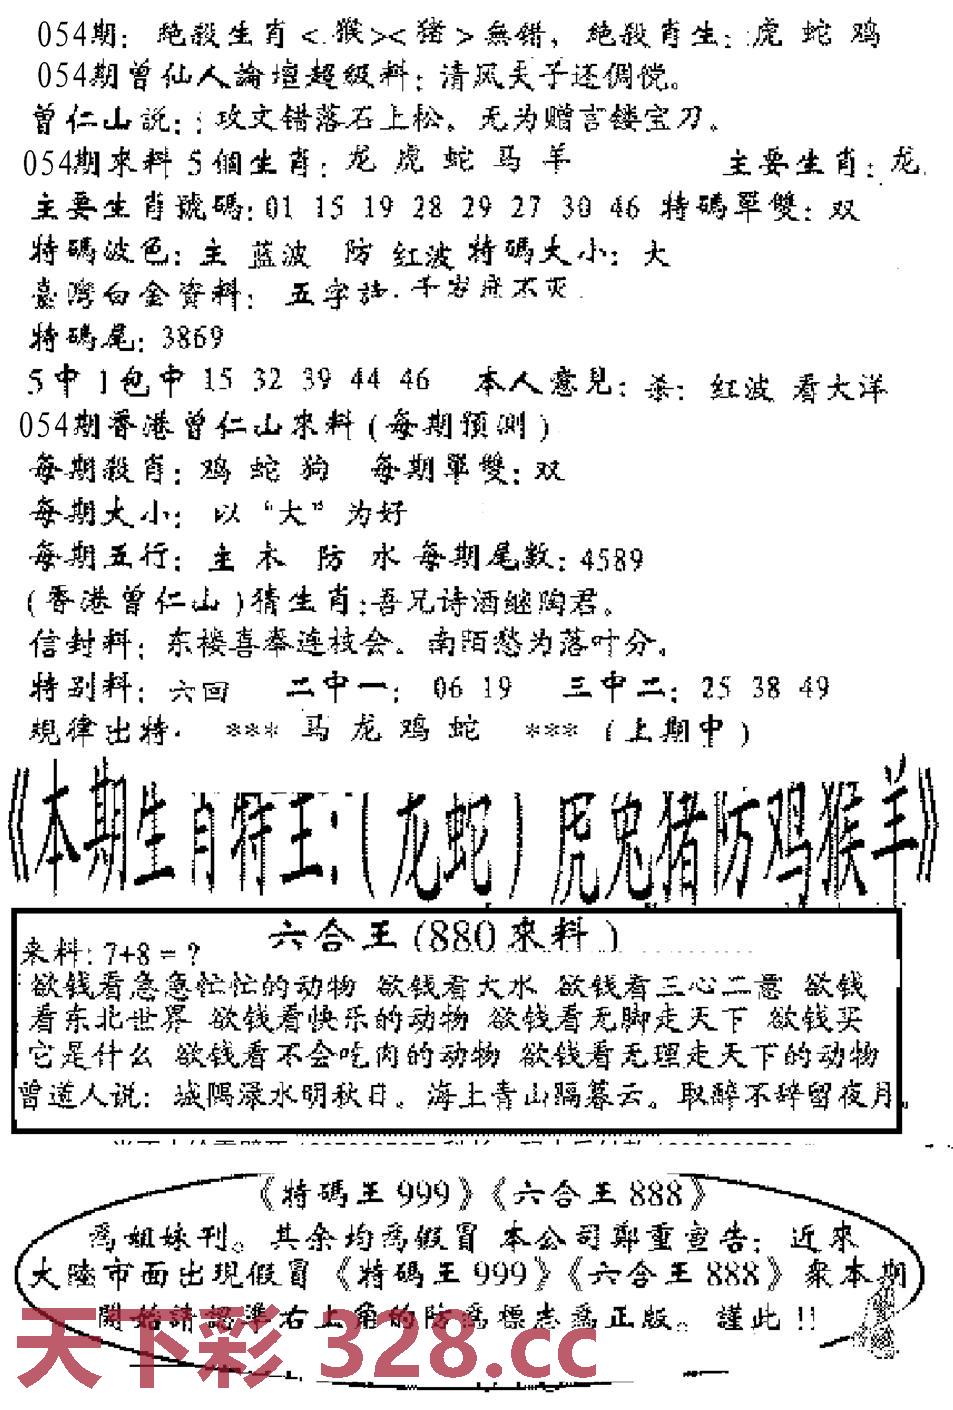 054期: 絶殺生肖<.猴><猪>無错, 絶殺肖生:虎 蛇 鸡
054期曾仙人論壇超级料: 清风天子还倜傥。
曾仁山説: 攻文错落石上松。无为赠言镂宝刀。
054期來料5個生肖: 龙 虎 蛇 马 羊 主要生肖: 龙
主要生肖號碼:01 15 19 28 29 27 30 46 特碼單雙: 双
特碼波色: 主 蓝波 防 红波 特碼大小: 大
臺灣白金資料: 五字話.千岁 不灭
特碼尾: 3869
5中1包中 15 32 39 44 46 本人意見: 杀: 红波 看大洋
054期香港曾仁山來料(每期预测)
每期殺肖: 鸡 蛇 狗 每期單雙: 双
每期大小: 以“大”为好
每期五行: 主 木 防 水 每期尾数: 4589
(香港曾仁山)猜生肖:吾兄诗酒继陶君。
信封料: 东楼喜奉连枝会。南陌愁为落叶分。
特别料: 六回 二中一: 06 19 三中二: 25 38 49
規律出特. *** 马 龙 鸡 蛇 *** (上期中)
《本期生肖特王:(龙蛇)虎兔猪防鸡猴羊》
六合王(880來料)
来料: 7+8=?
欲钱看急急忙忙的动物 欲钱看大水 欲钱看三心二意 欲钱
看东北世界 欲钱看快乐的动物 欲钱看无脚走天下 欲钱买
它是什么 欲钱看不会吃肉的动物 欲钱看无理走天下的动物
曾道人说: 城隅渌水明秋日。海上青山隔暮云。取醉不辞留夜月。
《特碼王999》《六合王888》
爲姐妹刊。其余均爲假冒 本公司鄭重宣告: 近來
大陸市面出現假冒《特碼王999》《六合王888》衆本期
開始請認準右上角的防爲標志爲正版。謹此!!
天下彩 328.cc